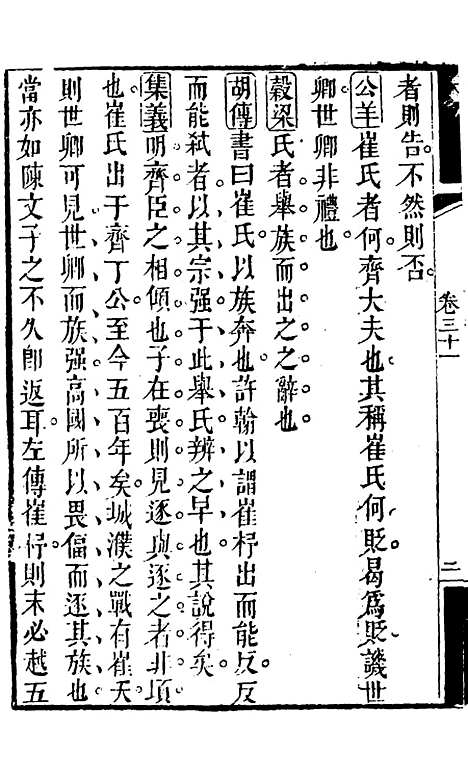 卷三十一
二
者則告不然則否
公羊崔氏者何齊大夫也其稱崔氏何貶曷爲貶譏世
卿世卿非禮也
穀梁氏者舉族而出之之辭也
胡傳書曰崔氏以族奔也許翰以謂崔杼出而能反反
而能弑者以其宗强于此舉氏辨之早也其說得矣
集義明齊臣之相傾也子在喪則見逐與逐之者非項
也崔氏出于齊丁公至今五百年矣城濮之戰有崔夭
則世卿可見世卿而族强高國所以畏偪而逐其族也
當亦如陳文子之不久卽返耳左傳崔杼則未必越五